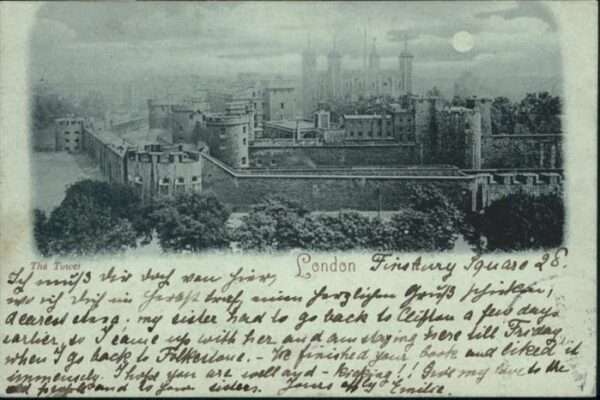 The Tower
London Finsbury Square 28.
Ich muß Dir doch von hier,
wo ich Dich im Herbst traf, einen herzlichen Gruß schicken,
dearest. my sister had to go back to Clifton a few days
earlier, so I came up with her and am staying here till Friday,
when I go back to Folkestone. - We finished your book and liked it
immensely. I hope you are well and - kicking!! Give my love to the
old people and to your sisters. Yours affly Emilie.